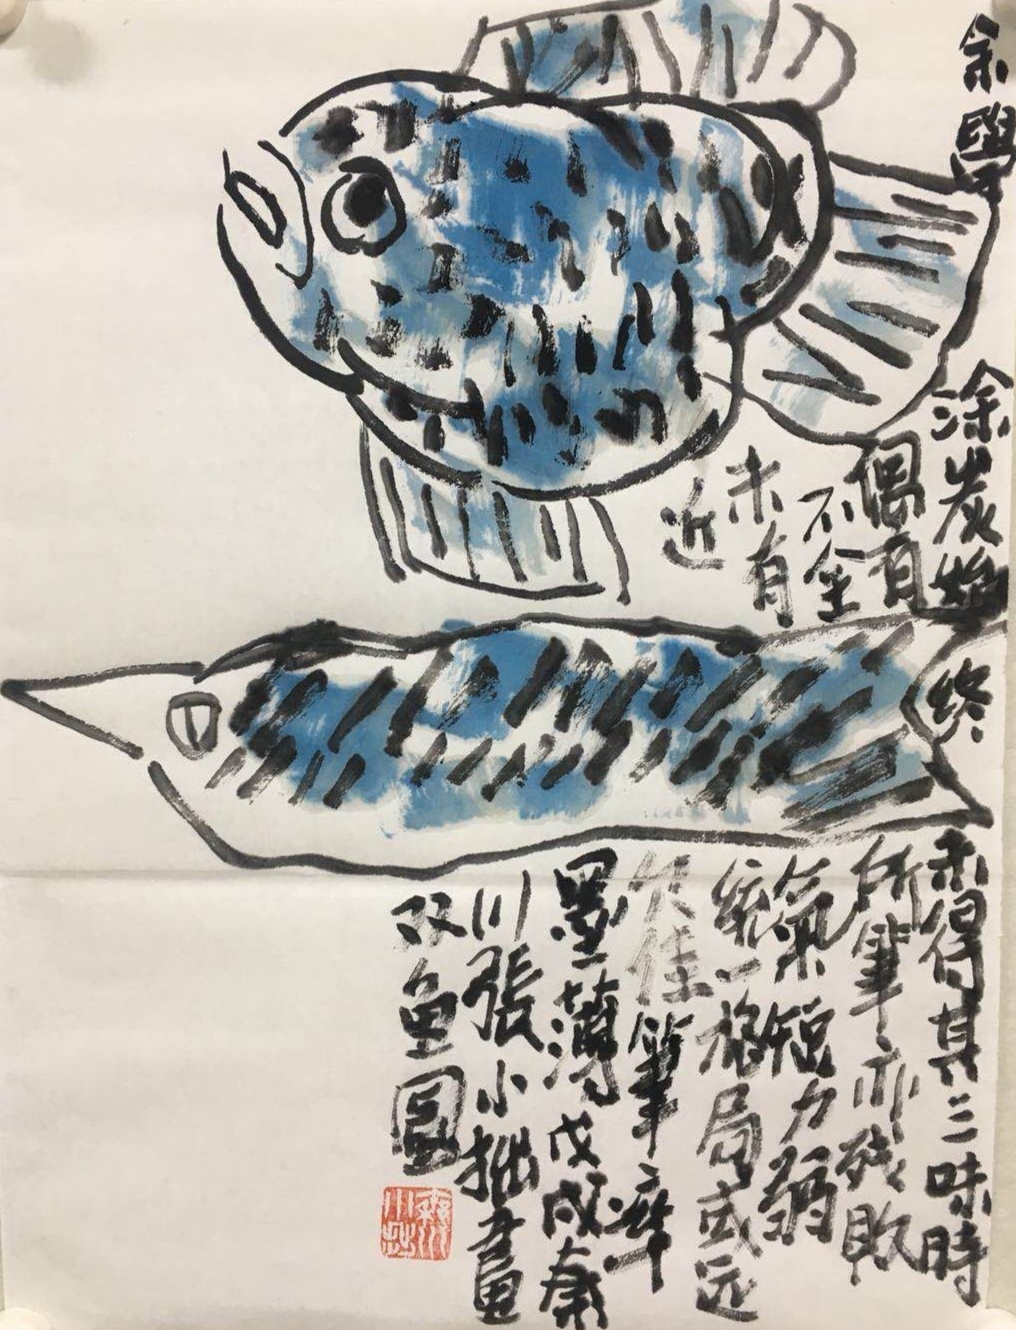 余學涂炭始終未得其三味時
偶有所筆亦殘敗
不全氣短力弱
未有統一格局或远
近欠佳筆
墨薄戊戌秦
川張小拙畫
双鱼圖